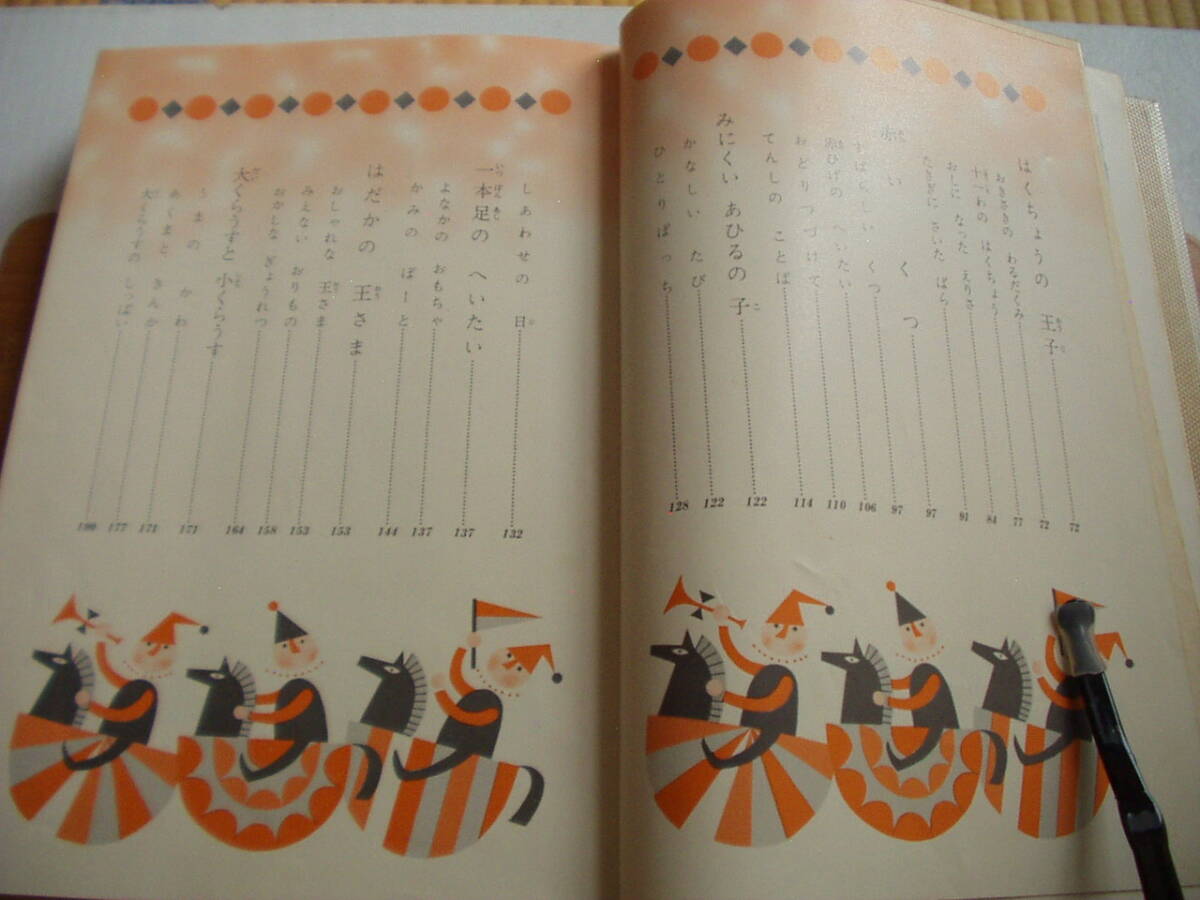 はくちょうの 王子 72
おきさきの わるだくみ 72
十一わの はくちょう 77
おしに なった えりさ 84
たきぎに さいた ばら 91
赤い くつ 97
すばらしい くつ 97
赤ひげの へいたい 106
おどりつづけて 110
てんしの ことば 114
みにくい あひるの 子 122
かなしい たび 122
ひとりぼっち 128
しあわせの 日 132
一本足の へいたい 137
よなかの おもちゃ 137
かみの ぼーと 144
はだかの 王さま 153
おしゃれな 王さま 153
みえない おりもの 158
おかしな ぎょうれつ 164
大くらうすと 小くらうす 171
うまの かわ 171
あくまと きんか 177
大くらうすの しっぱい 190